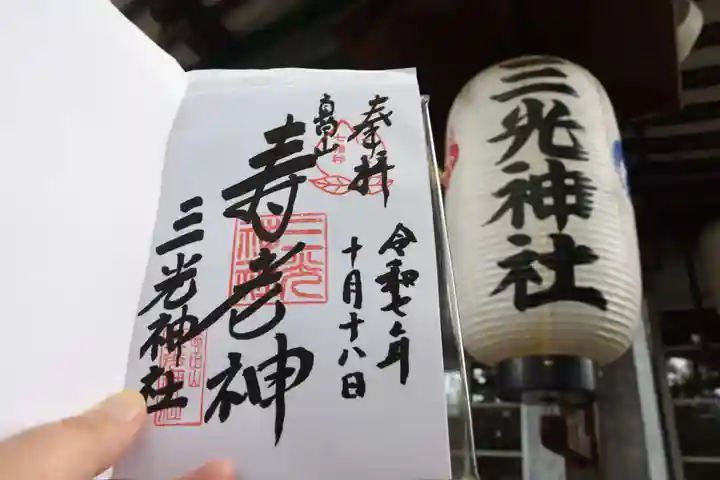 奉拝
令和七年
十月十八日
真田山
寿老神
三光神社
三光神社
三光神社